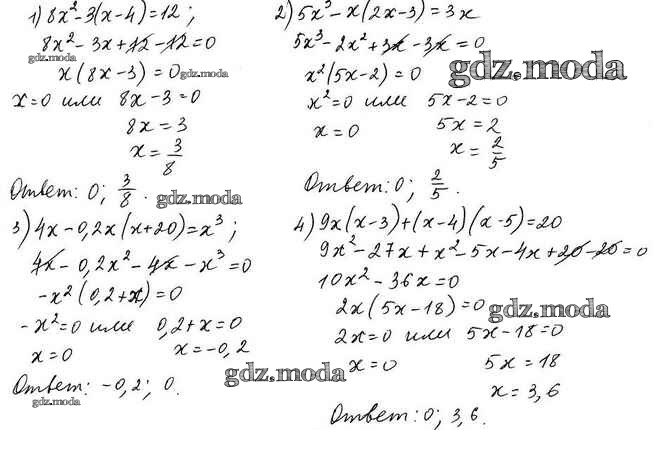 1) 8x² - 3(x - 4) = 12 ;
8x² - 3x + 12 - 12 = 0
gdz.moda
x(8x - 3) = 0 gdz.moda
x = 0 или 8x - 3 = 0
8x = 3
x = 3/8
Ответ: 0; 3/8 . gdz.moda
2) 5x³ - x(2x - 3) = 3x
5x³ - 2x² + 3x - 3x = 0
x²(5x - 2) = 0 gdz.moda
x² = 0 или 5x - 2 = 0
x = 0 5x = 2
x = 2/5
Ответ: 0; 2/5 .
3) 4x - 0,2x(x + 20) = x³ ;
4x - 0,2x² - 4x - x³ = 0
-x²(0,2 + x) = 0
-x² = 0 или 0,2 + x = 0
x = 0 x = -0,2
gdz.moda
Ответ: -0,2; 0.
gdz.moda
4) 9x(x - 3) + (x - 4)(x - 5) = 20
9x² - 27x + x² - 5x - 4x + 20 - 20 = 0
10x² - 36x = 0
2x(5x - 18) = 0 gdz.moda
2x = 0 или 5x - 18 = 0
x = 0 5x = 18
x = 3,6
Ответ: 0; 3,6.